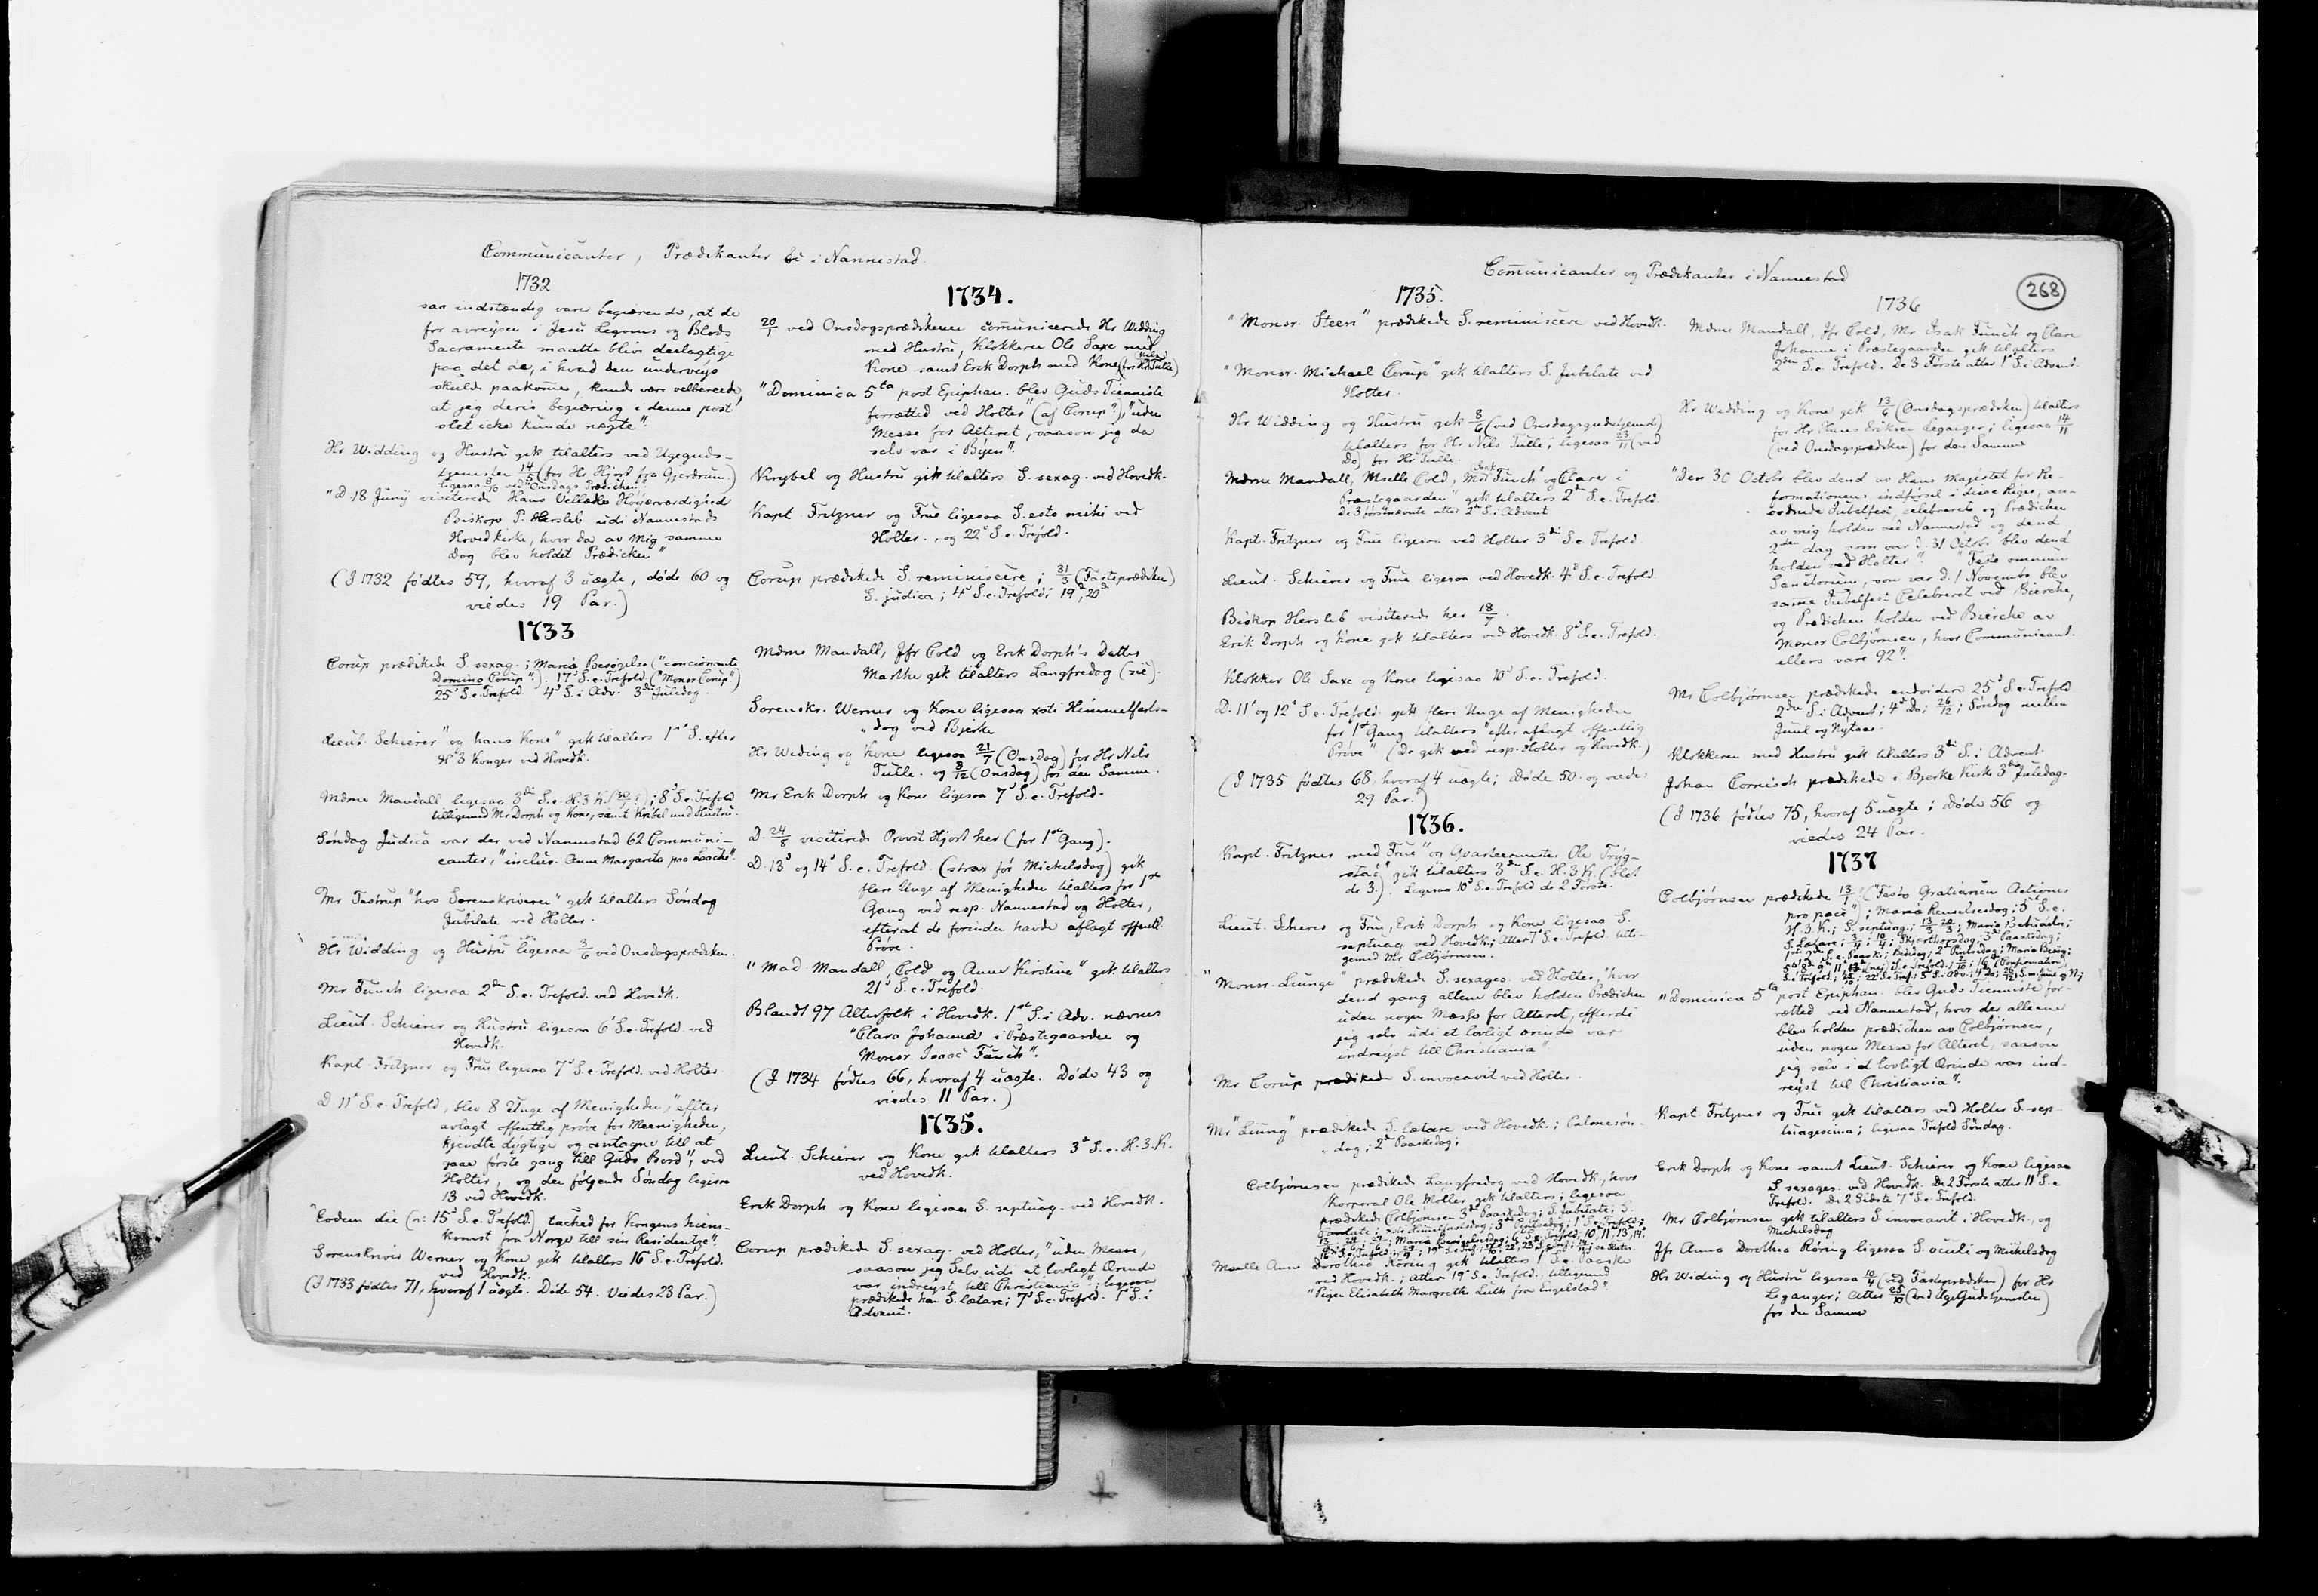 Communicanter, Prædikanter &c i Nannestad.
1732
saa indstendig vare begierende, at de
før avreysen i Jesu Legoms og Blods
Sacramente maatte blive deelagtige
paa det de, i hvad dem underveys
skulde paakomme, kunde være velbereede,
at jeg deris begiæring i denne post
slet icke kunde nægte".
Hr Widding og Hustru gik tilalters ved Ugeguds-
tjenesten 14/5 (for Hr Hjort fra Gjerdrum.)
ligesaa 8/10 ved "Onsdags Prædichen"
"D. 18 Junij visiterede Hans Velædle Höyærværdighed
Biskop P. Hersleb udi Nannestads
Hovedkirke, hvor da av mig samme
dag blev holdet Prædicken"
(I 1732 fødtes 59, hvoraf 3 uægte, døde 60 og
viedes 19 Par.)
1733
Corup prædikede S. sexag.; Mariæ Besøgelse ("concionante
Domino Corup".) 17d S.e. Trefold. ("Monsr Corup")
25d S.e. Trefold. 4d S. i Adv. 3die Juledag.
Lieut. Schierer "og hans Kone" gik tilalters 1ste S. efter
H. 3 Konger ved Hovedk.
Mdme Mandall ligesaa 3die S.e. H. 3 K. (30/1 ?); 8d S.e. Trefold
tilligemed Mr Dorph og Kone, samt Kribel med Hustru.
Søndag Judica var der ved Nannestad 62 Communi-
canter, "inclus. Anne Margareta paa Laache".
Mr Tastrup "hos Sorenskriveren" gik tilalters Søndag
Jubilate ved Holter.
Hr Widding og Hustru ligesaa 3/6 ved Onsdagsprædiken.
Mr Funch ligesaa 2den S.e. Trefold. ved Hovedk.
Lieut. Schierer og Hustru ligesaa 6d S.e. Trefold. ved
Hovedk.
Kapt. Fritzner og Frue ligesaa 7d S.e. Trefold. ved Holter.
D. 11d S.e. Trefold, blev 8 Unge af Menigheden, "effter
avlagt offentlig prøve for Meenigheden,
kjendte dygtige og antagne till at
gaae første gang till Guds Bord", ved
Holter, og den følgende Søndag ligesaa
13 ved Hovedk.
"Eodem die (ɔ: 15d S.e. Trefold.) tached for Kongens hiem-
komst fra Norge till sin Residentze".
Sorenskriver Werner og Kone gik tilalters 16 S.e. Trefold.
ved Hovedk.
(I 1733 fødtes 71, hvoraf 1 uægte. Døde 54. Viedes 23 Par.)
1734.
20/1 ved Onsdagsprædikenen communicerede Hr Widding
med Hustru, Klokkeren Ole Saxe med
Kone samt Erik Dorph med Kone (for Hr Nils Tulle)
"Dominica 5ta post Epiphan. blev Guds Tienniste
forrætted ved Holter" (af Corup?), "uden
Messe for Alteret, saasom jeg da
selv var i Byen".
Krybel og Hustru gik tilalters S. sexag. ved Hovedk.
Kapt. Fritzner og Frue ligesaa S. esto mihi ved
Holter., og 22d S.e. Trefold.
Corup prædikede S. reminiscere; 31/3 (Fasteprædiken)
S. judica; 4d S.e. Trefold; 19d, 20d
Mdme Mandall, Jfr Cold og Erik Dorph's Datter
Marthe gik tilalters Langfredag (sic).
Sorenskr. Werner og Kone ligesaa xsti Himmelfarts-
dag ved Bjerke
Hr Widing og Kone ligesaa 21/7 (Onsdag) for Hr Nils
Tulle. og 8/12 (Onsdag) for den Samme.
Mr Erik Dorph og Kone ligesaa 7d S.e. Trefold.
D. 24/8 visiterede Provst Hjort her (for 1ste Gang).
D. 13d og 14d S.e. Trefold. (strax før Mickelsdag) gik
flere Unge af Menigheden tilalters for 1ste
Gang ved resp. Nannestad og Holter,
efterat de forinden havde aflagt offentl.
Prøve.
"Mad. Mandall, Cold og Anne Kirstine" gik tilalters
21d S.e. Trefold.
Blandt 97 Alterfolk i Hovedk. 1ste S. i Adv. nævnes
"Clara Johanna i Præstegaarden og
Monsr. Isaac Funch".
(I 1734 fødtes 66, hvoraf 4 uægte. Døde 43 og
viedes 11 Par.)
1735.
Lieut. Schierer og Kone gik tilalters 3d S.e. H. 3. K.
ved Hovedk.
Erik Dorph og Kone ligesaa S. septuag. ved Hovedk.
Corup prædikede S. sexag. ved Holter, "uden Messe,
saasom jeg Selv udi et lovligt Ærinde
var indreyst till Christiania"; ligesaa
prædikede han S. lætare; 7d S.e. Trefold. 1ste S. i
Advent.
Communicanter og Prædikanter i Nannestad
268
1735.
"Monsr. Steen" prædikede S. reminiscere ved Hovedk.
"Monsr. Michael Corup" gik tilalters S. Jubilate ved
Holter.
Hr Widding og Hustru gik 8/6 (ved Onsdagsgudstjenest)
tilalters for Hr Nils Tulle; ligesaa 23/11 (ved
Do) for Hr Tulle.
Mdme Mandall, Mselle Cold, Mr Isak Funch "og Clare i
Præstegaarden" gik tilalters 2d S.e. Trefold.
De 3 førstnævnte atter 2d S. i Advent
Kapt. Fritzner og Frue ligesaa ved Holter 3die S.e. Trefold.
Lieut. Schierer og Frue ligesaa ved Hovedk. 4d S.e. Trefold.
Biskop Hersleb visiterede her 18/7.
Erik Dorph og Kone gik tilalters ved Hovedk. 8d S.e. Trefold.
Klokker Ole Saxe og Kone ligesaa 10d S.e. Trefold.
D. 11d og 12d S.e. Trefold. gik flere Unge af Menigheden
for 1ste Gang tilalters "efter aflagt offentlig
Prøve" (De gik ved resp. Holter og Hovedk.)
(I 1735 fødtes 68, hvoraf 4 uægte; døde 50. og viedes
29 Par.)
1736.
Kapt. Fritzner med Frue "og Qvarteermester Ole Tryg-
stad" gik tilalters 3die S.e. H. 3. K. (
de 3.) Ligesaa 10d S.e. Trefold de 2 Første.
Lieut. Schierer og Frue, Erik Dorph og Kone ligesaa S.
septuag. ved Hovedk.; Atter 7d S.e. Trefold. tilli-
gemed Mr Colbjørnsen.
"Monsr. Liunge" prædikede S. sexages. ved Holter, "hvor
dend gang allene blev holden Prædichen
uden nogen Mæsse for Alteret, effterdi
jeg selv udi et lovligt ærinde var
indreyst till Christiania"
Mr Corup prædikede S. invocavit ved Holter.
Mr "Liung" prædikede S. lætare ved Hovedk.; Palmesøn-
dag; 2d Paaskedag;
Colbjørnsen prædikede Langfredag ved Hovedk., hvor
Korporal Ole Møller gik tilalters; ligesaa
prædikede Colbjørnsen 3die Paaskedag; S. Jubilate; S.
Cantate;
Mselle Anne Dorothea Røring gik tilalters 1ste S.e. Paaske
ved Hovedk.; Atter 19d S.e. Trefold., tilligemed
"Pigen Elisabeth Margrethe Luth fra Engelstad".
1736
Mdme Mandall, Jfr Cold, Mr Isak Funch og Clare
Johanne i Præstegaarden gik tilalters
2den S.e. Trefold. De 3 Første atter 1ste S. i Advent.
Hr Widding og Kone gik 13/6 (Onsdagsprædiken) tilalters
for Hr. Hans Eriksen Leganger; ligesaa 14/11
(ved Onsdagsprædiken) for den Samme
"Den 30 Octobr blev dend av Hans Majestet for Re-
formationens indførsel i disse Riger, an-
ordnede Jubelfest, celebreret og Prædichen
av mig holden ved Nannestad og dend
2den dag som var d. 31 Octobr blev dend
holden ved Holter". "Festo omnium
Sanctorum, som var d. 1 Novembr blev
samme Jubelfest Celebreret ved Bierche,
og Prædichen holden ved Bierche av
Monsr Colbjørnsen, hvor Communicant.
ellers vare 92".
Mr Colbjørnsen prædikede endvidere 25d S.e. Trefold
2den S. i Advent; 4d Do; 26/12; Søndag mellem
Juul og Nytaar.
Klokkeren med Hustru gik tilalters 3die S. i Advent.
Johan Cornisch prædikede i Bjerke Kirke 3die Juledag.
(I 1736 fødtes 75, hvoraf 5 uægte; Døde 56 og
viedes 24 Par.
1737
Colbjørnsen prædikede 13/1 ("Festo Gratiarum Actionis
pro pace"); Mariæ Renselsesdag; 5d S.e.
H. 3. K.; S. septuag.;
S. Lætare; Skjærthorsdag; 3die Paaskedag;
"Dominica 5ta post Epiphan. blev Guds Tienniste for-
rætted ved Nannestad, hvor der alleene
blev holden prædichen av Colbjørnsen,
uden nogen Messe for Alteret, saasom
jeg selv i et lovligt Ærinde var ind-
reyst till Christiania".
Kapt. Fritzner og Frue gik tilalters ved Holter S. sep-
tuagesima; ligesaa Trefold. Søndag.
Erik Dorph og Kone samt Lieut. Schierer og Kone ligesaa
S. sexages. ved Hovedk. De 2 Første atter 11d S.e.
Trefold. De 2 Sidste 7d S.e. Trefold.
Mr Colbjørnsen gik tilalters S. invocavit i Hovedk., og
Mickelsdag
Jfr Anna Dorothea Röring ligesaa S. oculi og Mickelsdag
Hr Widing og Hustru ligesaa 10/4 (ved Fasteprædiken) for Hr
Leganger; atter 25/10 (ved UgeGudstjenesten)
for den Samme